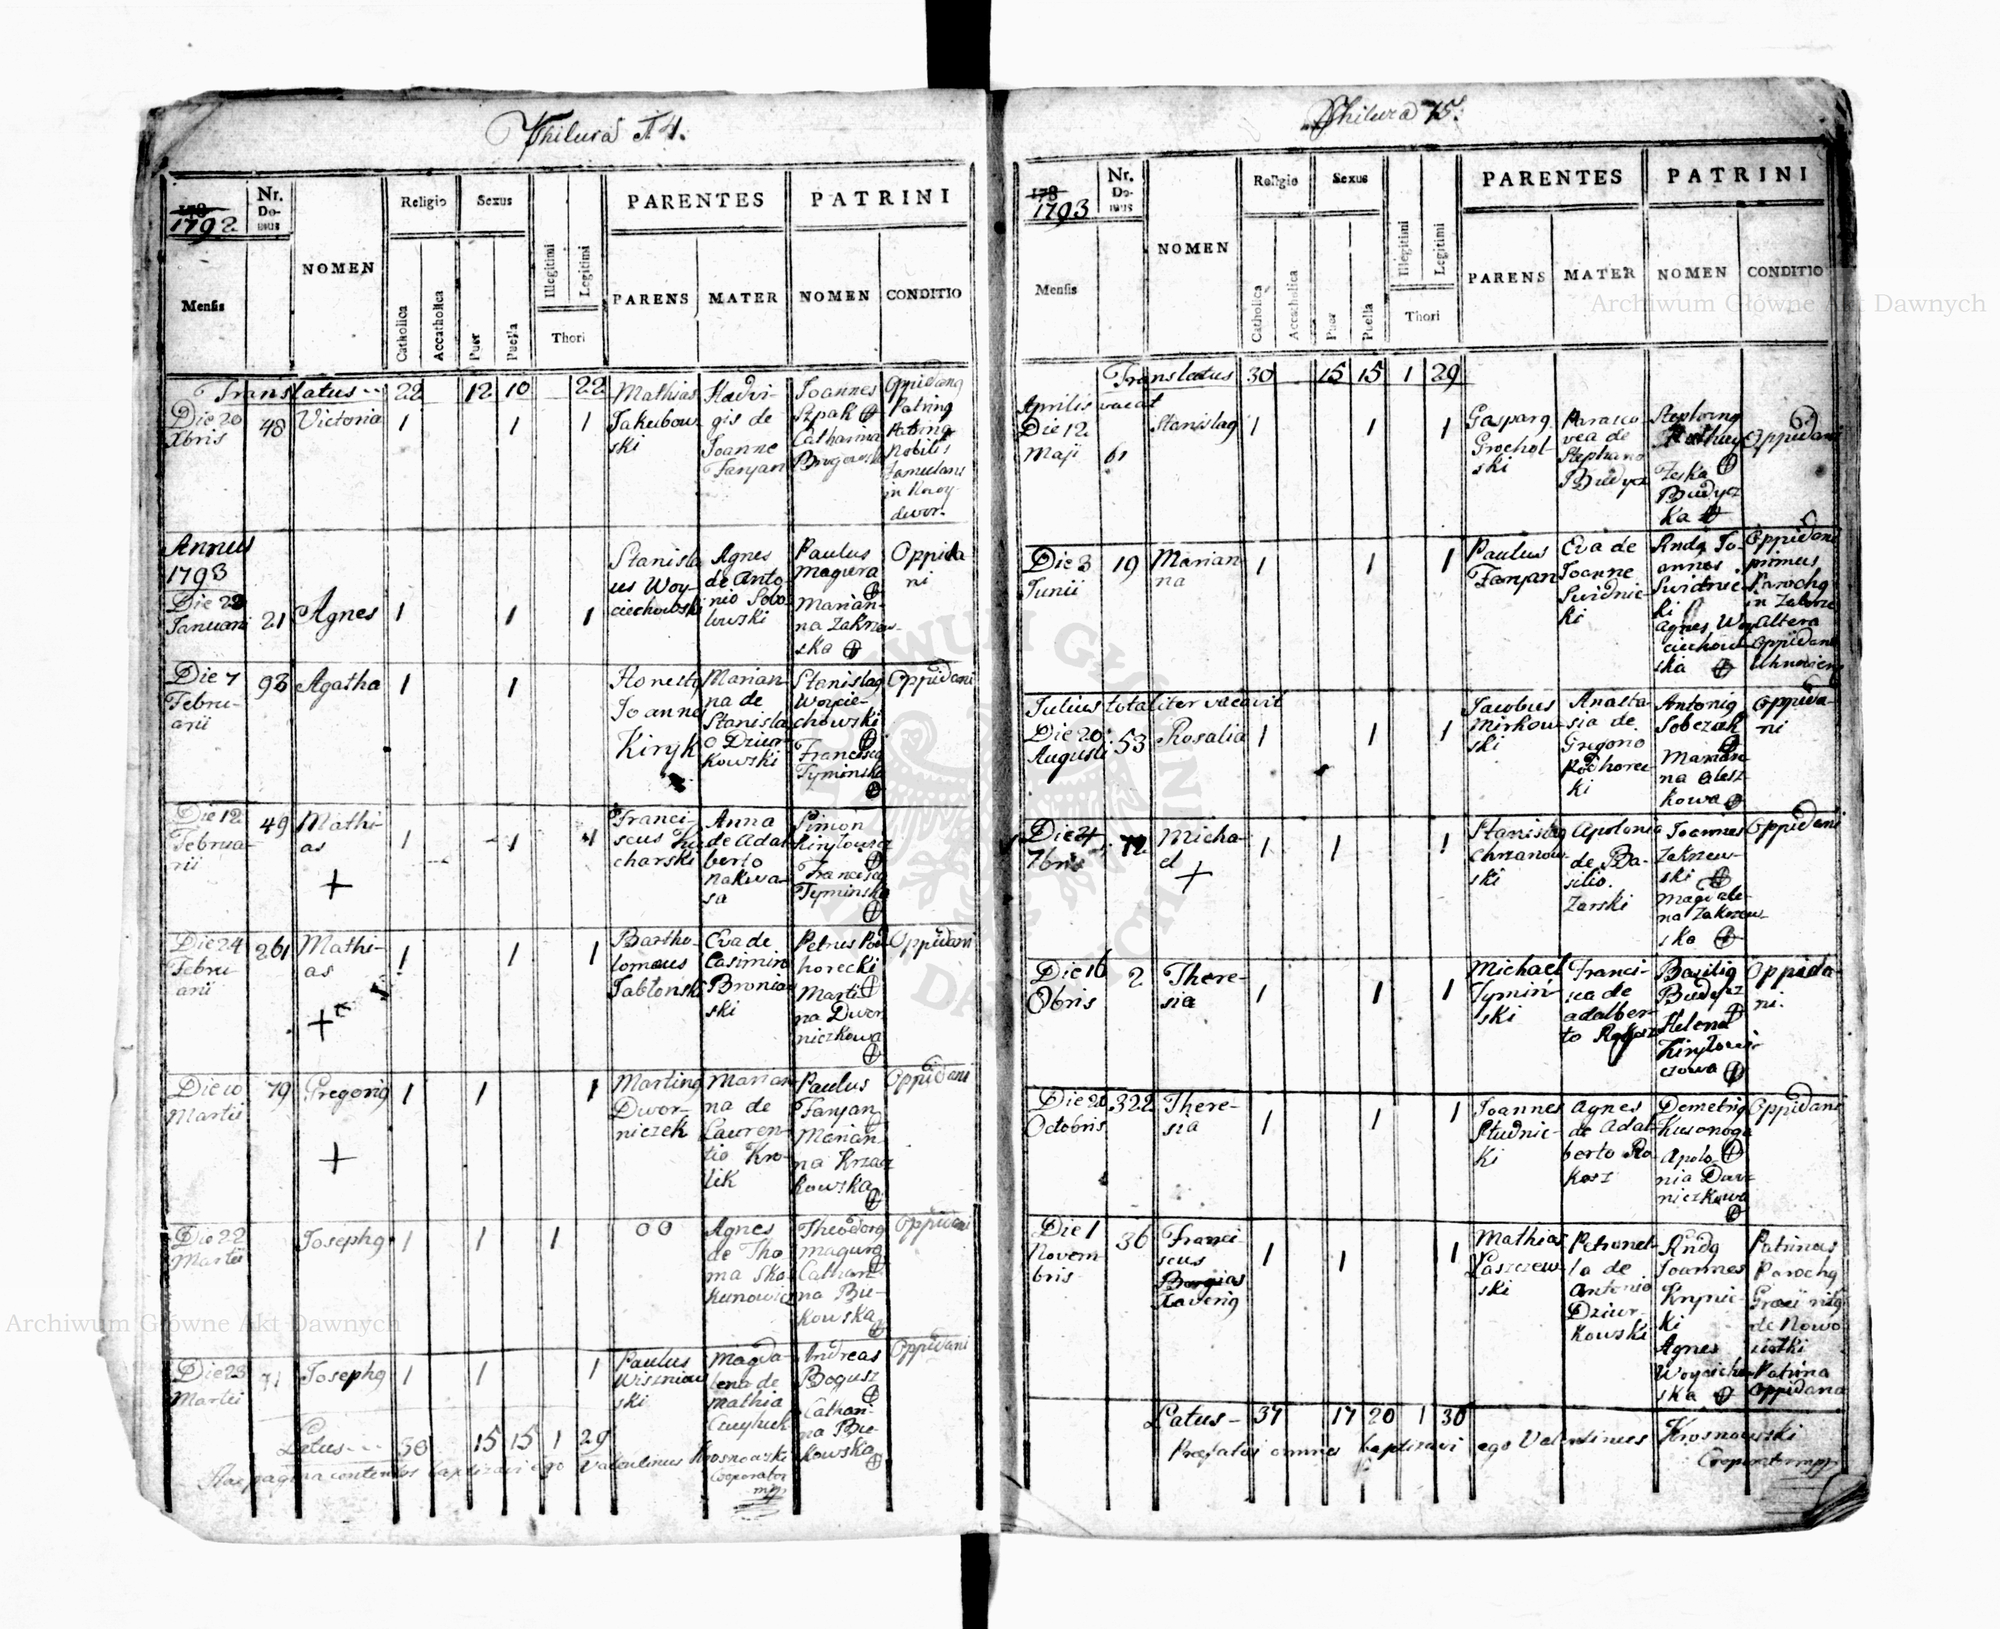 Philura 14.
1792
Nr. Domus
Mensis
NOMEN
Religio
Catholica
Accatholica
Sexus
Puer
Puella
Illegitimi
Legitimi
Thori
PARENTES
PARENS
MATER
PATRINI
NOMEN
CONDITIO
Translatus 22 12 10 22
Die 20
Xbris
48
Victoria
1 1 1
Mathias
Jakubow
ski
Hedvi-
gis de
Joanne
Faryan
Joannes
Szpak
Catharina
Nobilis
Famulans
in
dwor.
Annus
1793
Die 23
Januarii
21
Agnes
1 1 1
Stanisla
us Woy-
ciechowski
Agnes
de Anto-
nio Sobo-
lewski
Paulus
Magiera
Marian-
na Zakrzew-
ska
Oppida
ni
Die 7
Febru-
arii
93
Agatha
1 1
Honesto
Joanne
Kiryk
Marian-
na de
Stanisla
o Dziur-
kowski
Stanislaq
Woycie-
chowski
Francisca
Tyminska
Oppidani
Die 12
Februa-
rii
49
Mathi-
as
1 1 1
Franci-
scus Ku
charski
Anna
de Adal-
berto
Nakwa-
sa
Simon
Kirylowicz
Francisca
Tyminska
Die 24
Febru-
arii
261
Mathi-
as
1 1 1
Bartho-
lomaus
Jablonski
Eva de
Casimiro
Bronia-
ski
Petrus Pod-
horecki
Marti-
na Dwor-
niczkowa
Oppidani
Die 10
Martii
79
Gregoriq
1 1 1
Martinq
Dwor-
niczek
Marian-
na de
Lauren-
tio Kro-
lik
Paulus
Faryan
Marian-
na Krza-
kowska
Oppidani
Die 22
Martii
Josephq
1 1 1
00
Agnes
de Tho-
ma Sko-
kunowicz
Theodorq
Magura
Cathari-
na Bu-
kowska
Oppidani
Die 23
Martii
71
Josephq
1 1 1
Paulus
Wiszniow
ski
Magda-
lena de
Mathia
Andreas
Bogusz
Cathari-
na Bu-
kowska
Oppidani
Latus 30 15 15 1 29
Hac pagina contentos baptizavi ego Valentinus Krosnowski
Cooperator
mpp
Philura 15.
1793
Nr. Domus
Mensis
NOMEN
Religio
Catholica
Accatholica
Sexus
Puer
Puella
Illegitimi
Legitimi
Thori
PARENTES
PARENS
MATER
PATRINI
NOMEN
CONDITIO
Translatus 30 15 15 1 29
Aprilis vacat
Die 12
Maji
61
Stanislaq
1 1 1
Gasparq
Grochol-
ski
Parasco
vea de
Stephano
Budycz
Budycz
ka
Oppidani
Die 3
Junii
19
Marian
na
1 1 1
Paulus
Faryan
Eva de
Joanne
Swidnic-
ki
Rndq Jo-
annes
Swidnic-
ki
Agnes Woy
ciechow-
ska
Oppidani
primus
Parochq
in
Altera
Oppidana
Julius totaliter vacavit
Die 20
Augusti
53
Rosalia
1 1 1
Jacobus
Mirkow-
ski
Anasta-
sia de
Gregorio
Podhorec
ki
Antoniq
Sobczak
Marian-
na Olesz-
kowa
Oppida-
ni
Die 4
7bris
72
Micha-
el
1 1 1
Stanislaq
Chrzanow
ski
Apolonia
de Ba-
silio
Zarski
Joannes
Zakrzew-
ski
Magdale-
na Zakrzew-
ska
Oppidani
Die 16
Obris
2
There-
sia
1 1 1
Michael
Tymin-
ski
Franci-
sca de
Adalber-
to Rokosz
Basiliq
Budycz
Helena
Kirylowi-
czowa
Oppida-
ni.
Die 20
Octobris
322
There-
sia
1 1 1
Joannes
Studnic-
ki
Agnes
de Adal-
berto Ro-
kosz
Demetriq
Kusonoga
Apolo-
nia Dwor-
niczkowa
Oppidani
Die 1
Novem
bris
36
Franci-
scus
Borgias
Xaveriq
1 1 1
Mathias
Laszczew-
ski
Petronel-
la de
Antonio
Dziur-
kowski
Rndq
Joannes
Krynic-
ki
Agnes
Woyciechow
ska
Patrinus
Parochq
Graeci ritq
de Nowo
siolki
Patrina
Oppidana
Latus 37 17 20 1 36
Praefatos omnes baptizavi ego Valentinus Krosnowski
Cooperator mpp
Archiwum Główne Akt Dawnych
Archiwum Główne Akt Dawnych